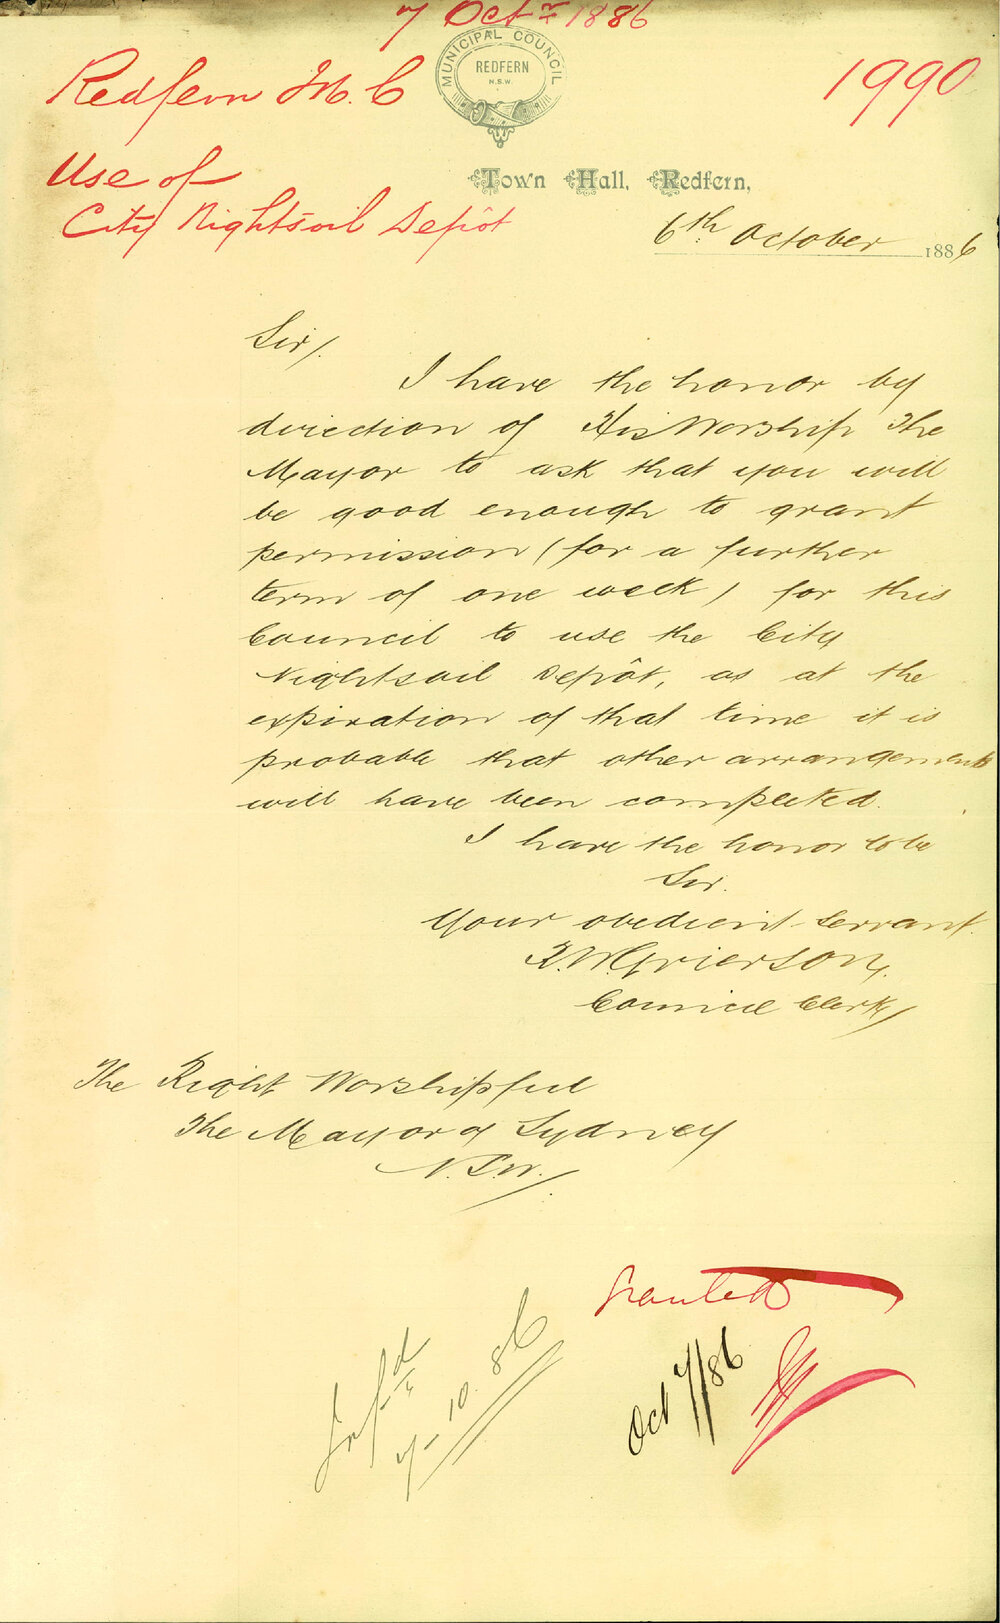 7 Octr 1886
Redfern M. C
1990
MUNICIPAL COUNCIL
REDFERN
N.S.W.
Use of
City Nightsoil Depôt
Town Hall, Redfern,
6th October 1886
Sir/.
I have the honor by
direction of His Worship The
Mayor to ask that you will
be good enough to grant
permission (for a further
term of one week) for this
Council to use the City
Nightsoil Depôt, as at the
expiration of that time it is
probable that other arrangements
will have been completed.
I have the honor to be
Sir.
Your obedient Servant.
Grierson.
Council Clerk/
The Right Worshipful
The Mayor of Sydney
N.S.W./
Granted
Infd
7-10.86
Oct 7/86